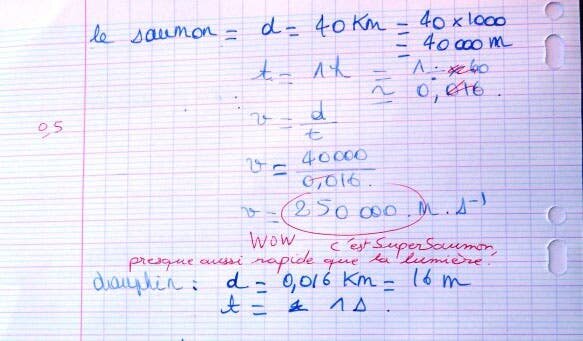 le saumon = d = 40 Km = 40 x 1000
= 40 000 m
t = 1 h = 1 : 60
≈ 0,016.
0,5
v = d/t
v = 40000/0,016.
v = 250 000. m. s⁻¹
WOW c'est SuperSaumon,
presque aussi rapide que la lumière.
dauphin : d = 0,016 Km = 16 m
t = 1 s.